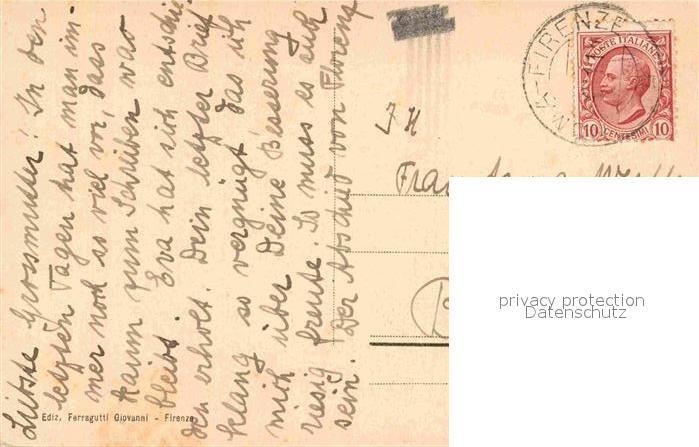 Liebste Grossmutter! In den
letzten Tagen hat man im-
mer noch so viel vor, dass
kaum zum Schreiben was
bleibt. Eva hat sich entschie
den erholt. Dein letzter Brief
klang so vergnügt das ich
mich über Deine Besserung
riesig freute. So muss es auch
sein. Der Abschied von Florenz
Frau
FIRENZE
POSTE ITALIANE
10 CENTESIMI 10
privacy protection
Datenschutz
Ediz. Ferragutti Giovanni - Firenze